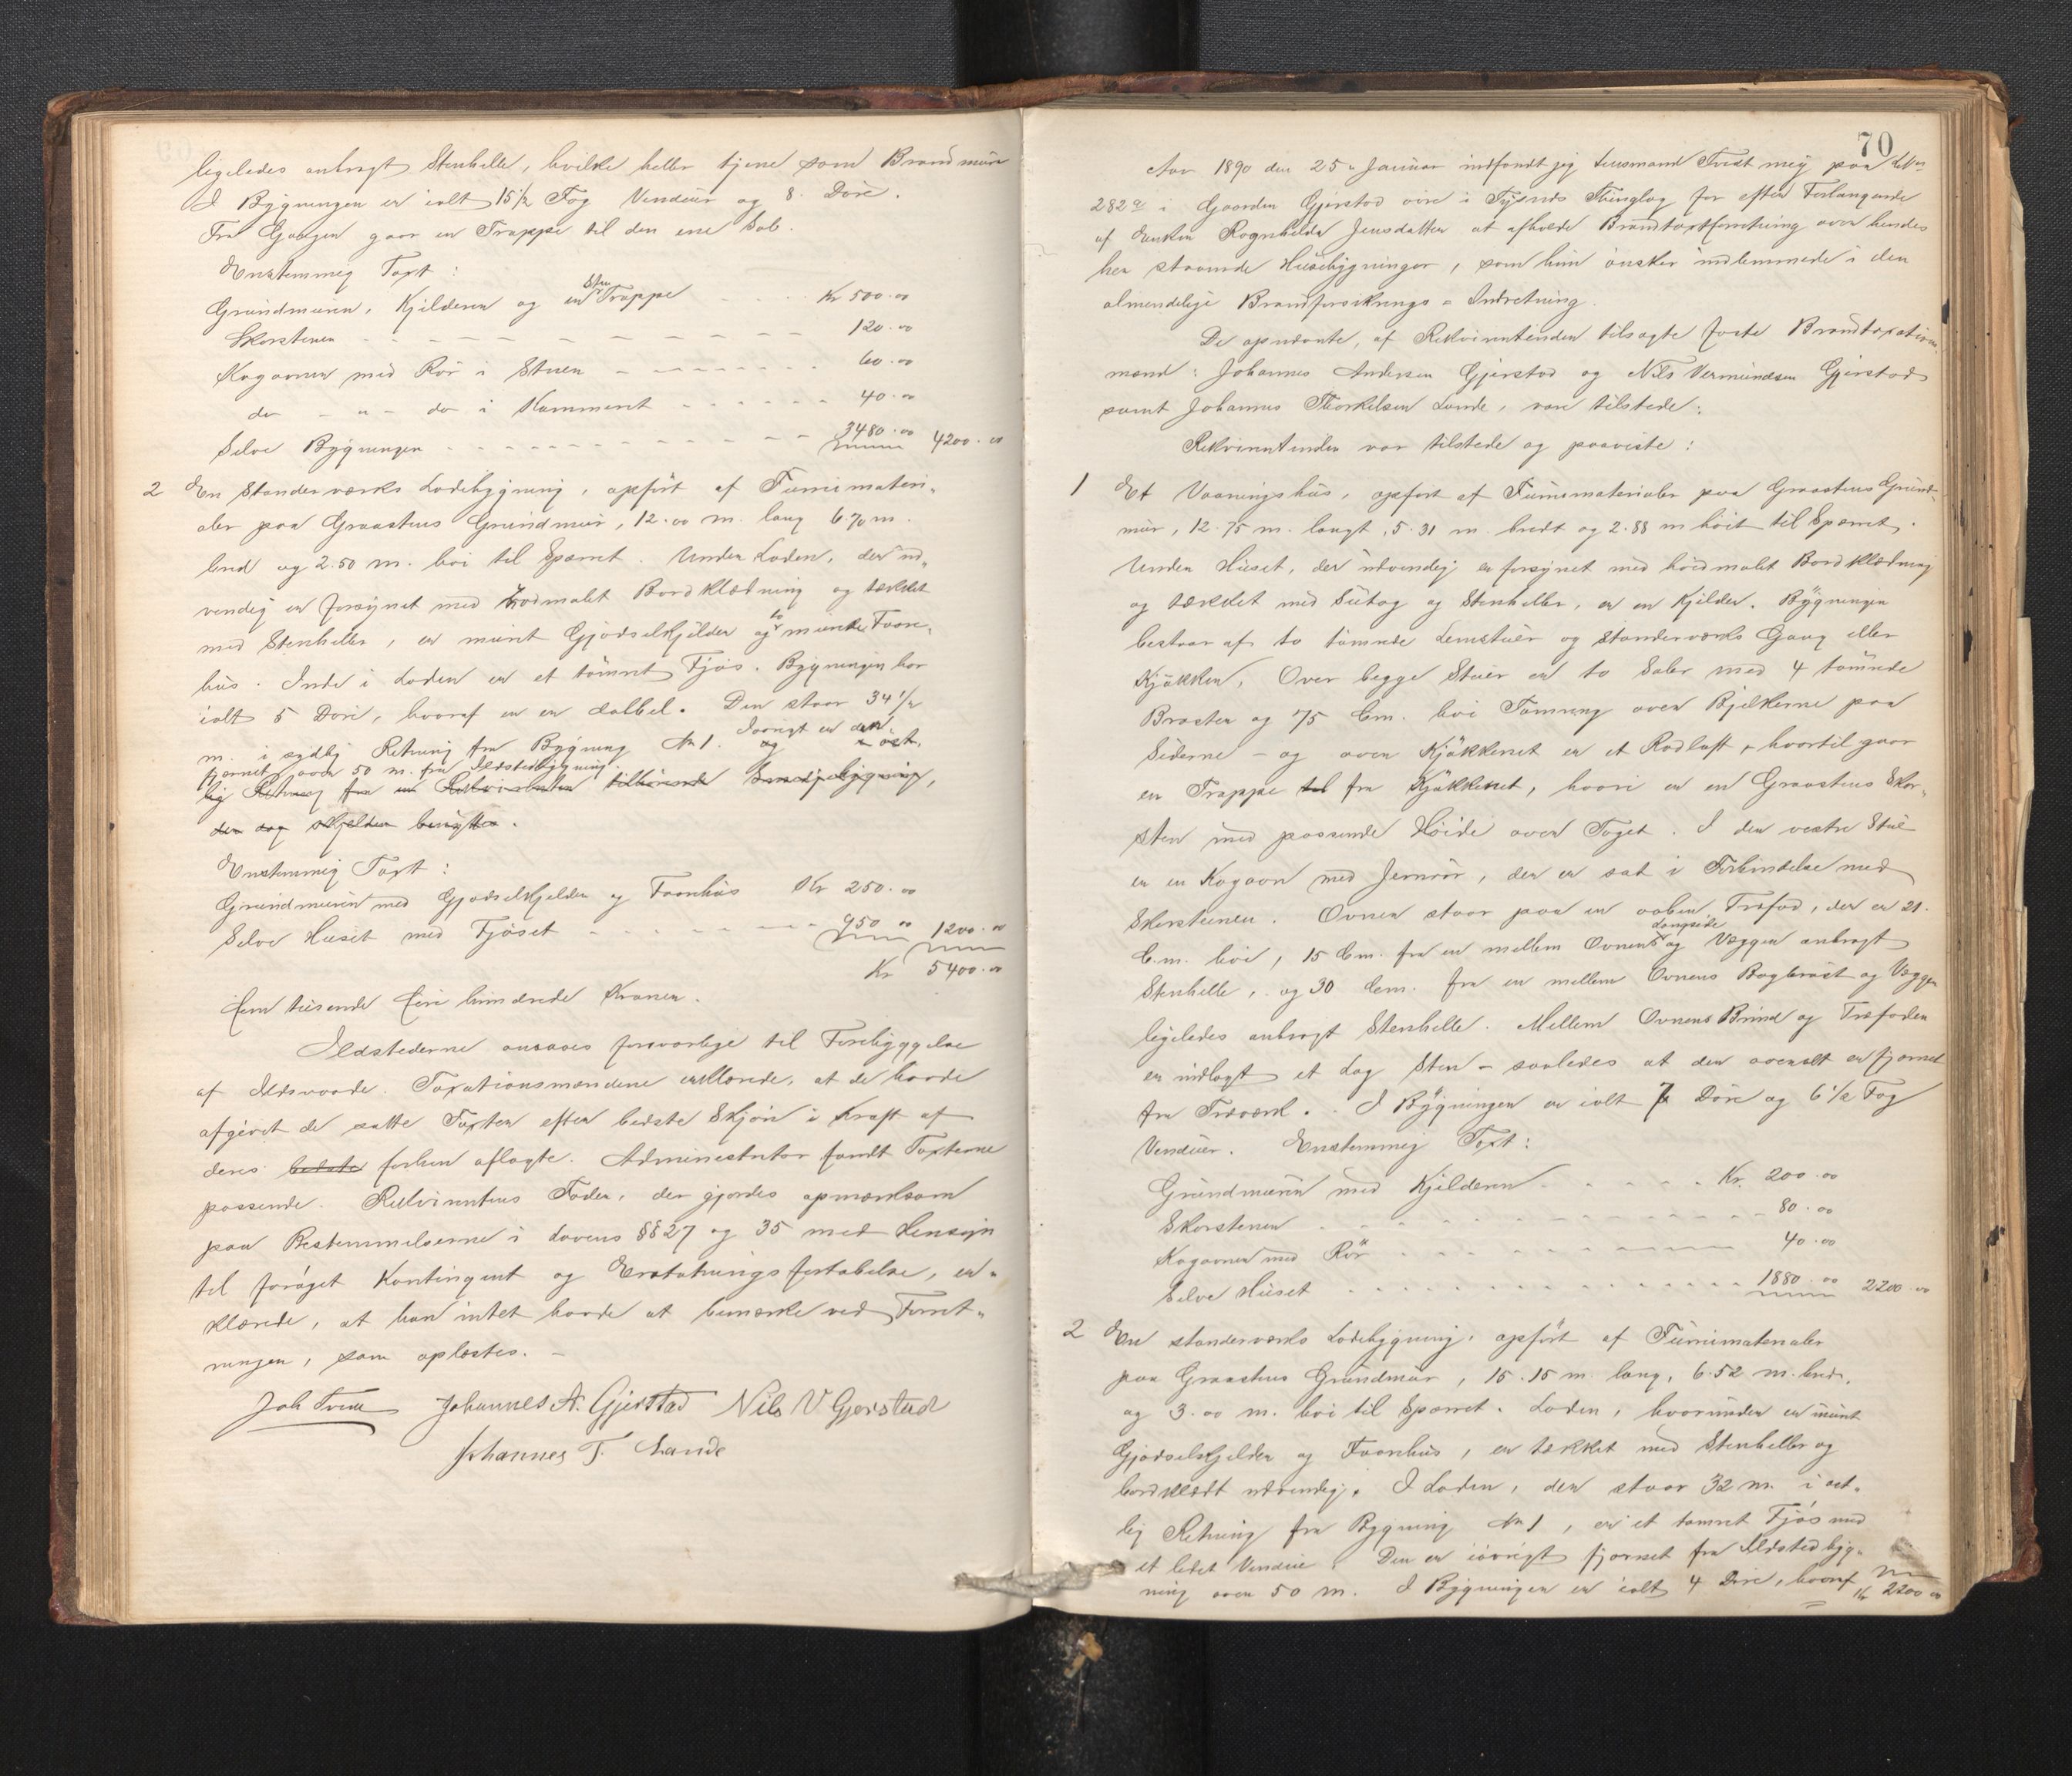 ligeledes anbragt Stenhelle, hvilke heller tjene som Brandmure
I Bygningen er ialt 15 1/2 Fag Vinduer og 8 Döre.
Fra Gangen gaar en Trappe til den ene Sal.
Enstemmig Taxt:
Grundmuren, Kjelderen og en Sten Trappe Kr 500.00
Skorstenen 120.00
Kogovnen med Rör i Stuen 60.00
do - " - do i Kammeret 40.00
Selve Bygningen 3480.00 4200.00
2 En Standerværks Ladebygning, opfört af Furumateri-
aler paa Graastens Grundmur, 12.00 m. lang 6.70 m.
bred og 2.50 m. höi til Sparret. Under Laden, der ud-
vendig er forsynet med rödmalet Bordklædning og tækket
med Stenheller, er muret Gjödselkjelder og to murede Faare-
hus. Inde i Laden er et tömret Fjös. Bygningen har
ialt 5 Döre, hvoraf en er dobbel. Den staar 34 1/2
m. i sydlig Retning fra Bygning No 1. Forövrigt er den og i öst-
fjernet over 50 m. fra Ildstedbygning.
lig Retning fra en Rekvirenten tilhörende Smedjebygning,
der dog sjelden benyttes.
Enstemmig Taxt:
Grundmuren med Gjödselkjelder og Faarehus Kr 250.00
Selve Huset med Fjöset 950 00 1200.00
Kr 5400.00
Fem tusende fire hundrede Kroner.
Ildstederne ansaaes forsvarlige til Forebyggelse
af Ildsvaade. Taxationsmændene erklærede, at de havde
afgivet de satte Taxter efter bedste Skjön i Kraft af
deres bedste forhen aflagte. Administrator fandt Taxterne
passende. Rekvirentens Fader, der gjordes opmærksom
paa Bestemmelserne i Lovens §§ 27 og 35 med Hensyn
til foröget Kontingent og Erstatnings fortabelse, er-
klærede, at han intet havde at bemærke ved Forret-
ningen, som oplæstes. -
Joh Tveit Johannes A. Gjerstad Nils V Gjerstad
Johannes T. Lande
70
Aar 1890 den 25. Januar indfandt jeg Lensmand Tveit mig paa Löbno
282 a i Gaarden Gjerstad övre i Tysnes Thinglag for efter Forlangende
af Enken Ragnhilda Jensdatter at afholde Brandtaxtforretning over hendes
her staaende Husebygninger, som hun önsker indlemmede i den
almindelige Brandforsikrings-Indretning.
De opnævnte, af Rekvirentinden tilsagte faste Brandtaxations-
mænd: Johannes Andersen Gjerstad og Nils Vermundsen Gjerstad
samt Johannes Thorkelsen Lande, vare tilstede.
Rekvirentinden var tilstede og paaviste:
1 Et Vaaningshus, opfört af Furumaterialer paa Graastens Grund-
mur, 12.75 m. langt, 5.31 m. bredt og 2.88 m höit til Sparret.
Under Huset, der udvendig er forsynet med hvidmalet Bordklædning
og tækket med Sutag og Stenheller, er en Kjelder. Bygningen
bestaar af to tömrede Lemstuer og standerværks Gang eller
Kjökken. Over begge Stuer er to Saler med 4 tömrede
Brøster og 75 Cm. höi Tömring over Bjelkerne paa
Siderne - og over Kjökkenet er et Rodloft, hvortil gaar
en Trappe til fra Kjökkenet, hvori er en Graastens Skor-
sten med passende Höide over Taget. I den vestre Stue
er en Kogovn med Jernrör, der er sat i Forbindelse med
Skorstenen. Ovnen staar paa en aaben Træfod, der er 21.
C.m. höi, 15 Cm. fra en mellem Ovnens Langside og Væggen anbragt
Stenhelle, og 30 Cm. fra en mellem Ovnens Bagbrøst og Væggen
ligeledes anbragt Stenhelle. Mellem Ovnens Bund og Træfoden
er indlagt et Lag Sten - saaledes at den overalt er fjernet
fra Træværk. I Bygningen er ialt 7 Döre og 6 1/2 Fag
Vinduer. Enstemmig Taxt:
Grundmuren med Kjelderen Kr. 200.00
Skorstenen 80.00
Kogovnen med Rör 40.00
Selve Huset 1880.00 2200.00
2 En standerværks Ladebygning, opfört af Furumaterialer
paa Graastens Grundmur, 15.15 m. lang, 6.52 m. bred,
og 3.00 m. höi til Sparret. Laden, hvorunder er muret
Gjödselkjelder og Faarehus, er tækket med Stenheller og
bordklædt udvendig. I Laden, der staar 32 m. i öst-
lig Retning fra Bygning No 1, er et tömret Fjös med
et lidet Vindue. Den er iövrigt fjernet fra Ildstedbyg-
ning over 50 m. I Bygningen er ialt 4 Döre, hvoraf Kr 2200 00